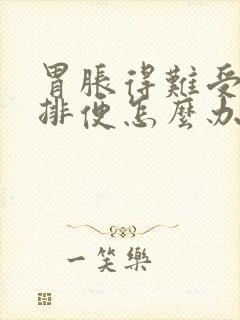 胃脹得難受
排便怎麼办
一笑樂